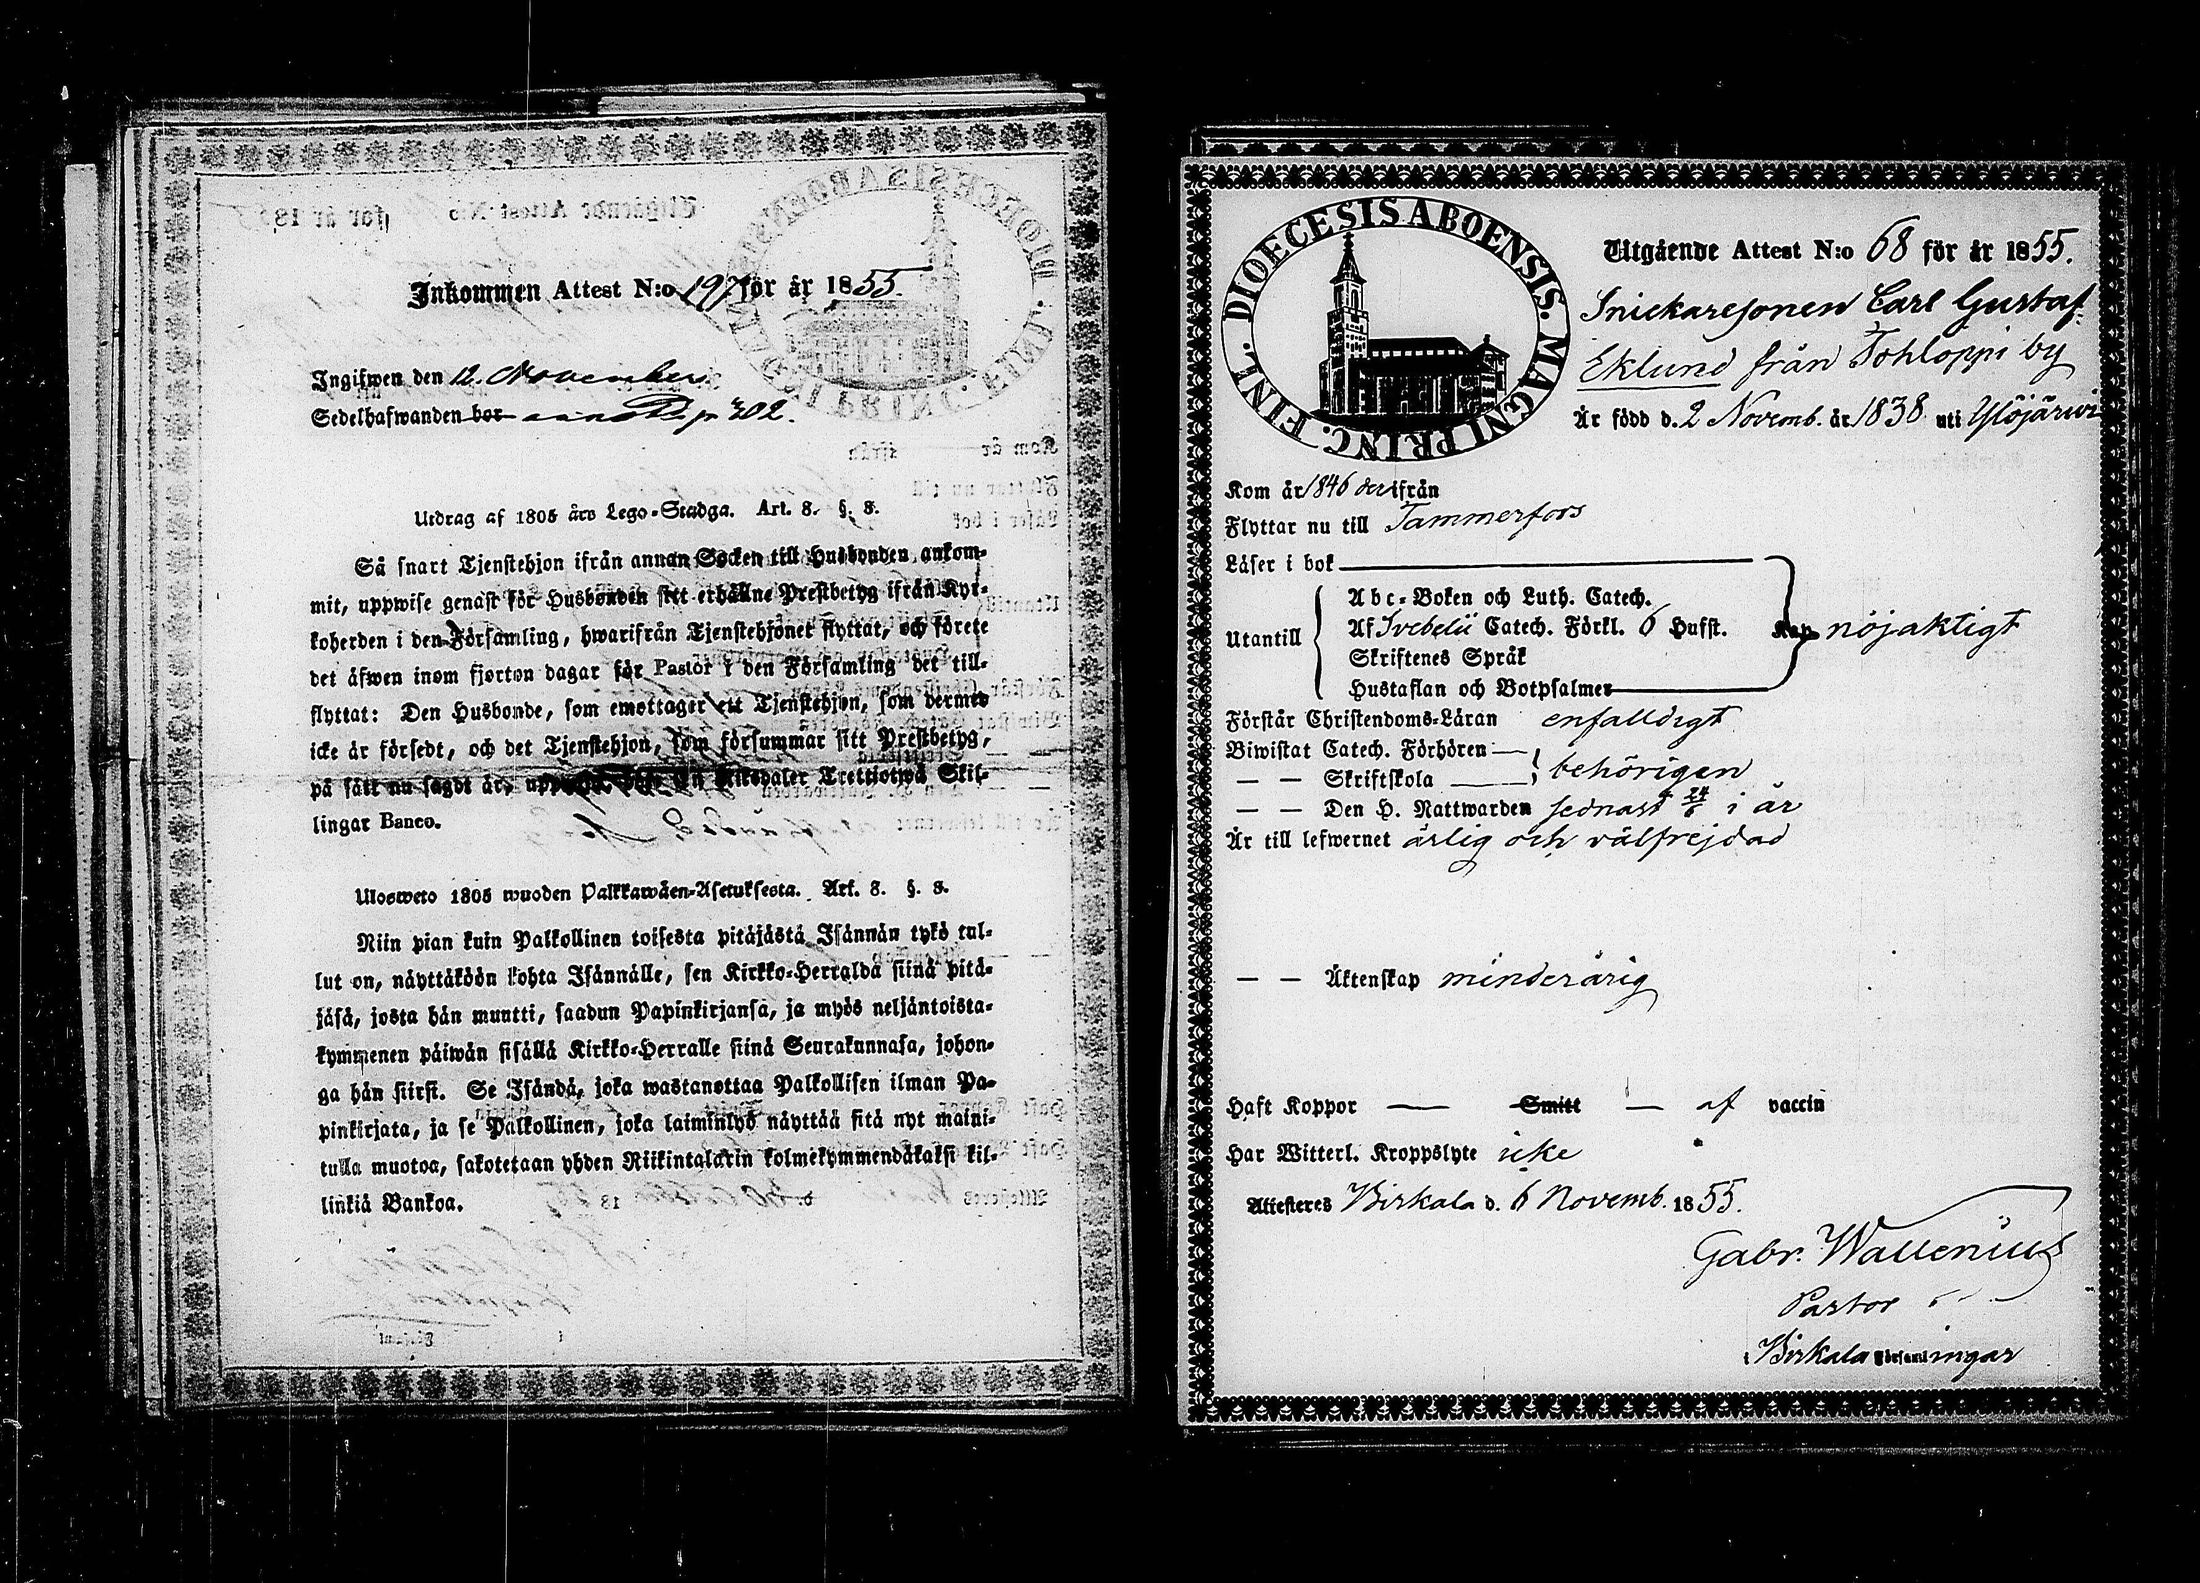 Inkommen Attest N:o 197 för år 1855.
Ingifwen den 12. November
Sedelhafwanden bor p 302.
Utdrag af 1805 års Lego-Stadga. Art. 8. §. 8.
Så snart Tjenstehjon ifrån annan Socken till Husbonden ankom-
mit, uppwise genast för Husbonden sitt erhållne Prestbetyg ifrån Kyr-
koherden i den Församling, hwarifrån Tjenstehjonet flyttat, och förete
det äfwen inom fjorton dagar för Pastor i den Församling det till-
flyttat: Den Husbonde, som emottager ett Tjenstehjon, som dermed
icke är försedt, och det Tjenstehjon, som försummar sitt Prestbetyg,
på sätt nu sagdt är, Riksdaler Trettiotwå Skil-
lingar Banco.
Ulosweto 1805 wuoden Palkkawäen-Asetuksesta. Art. 8. §. 8.
Niin pian kuin Palkollinen toisesta pitäjästä Isännän tykö tul-
lut on, näyttäköön kohta Isännälle, sen Kirkko-Herralda siinä pitä-
jäsä, josta hän muutti, saadun Papinkirjansa, ja myös neljäntoista-
kymmenen päiwän sisällä Kirkko-Herralle siinä Seurakunnasa, johon-
ga hän siirsi. Se Isändä, joka wastanottaa Palkollisen ilman Pa-
pinkirjata, ja se Palkollinen, joka laiminlyö näyttää sitä nyt maini-
tulla muotoa, sakotetaan yhden Riikintalarin kolmekymmendäkaksi kil-
linkiä Bankoa.
DIOECESIS ABOENSIS. MAGNI PRINC. FINL.
Utgående Attest N:o 68 för år 1855.
Snickaresonen Carl Gustaf
Eklund från Tohloppi by
Är född d. 2 Novemb. år 1838 uti Ylöjärwi
Kom år 1846 derifrån
Flyttar nu till Tammerfors
Läser i bok
Abc-Boken och Luth. Catech.
Utantill Af Svebelii Catech. Förkl. 6 Hufst. Kap nöjaktigt
Skriftenes Språk
Hustaflan och Botpsalmer
Förstår Christendoms-Läran enfalldigt
Biwistat Catech. Förhören
— — Skriftskola behörigen
— — Den H. Nattwarden sednast 24/6 i år
Är till lefwernet ärlig och välfrejdad
— — Äktenskap minderårig
Haft Koppor — Smitt — af vaccin
Har Witterl. Kroppslyte icke
Attesteres Birkala d. 6 Novemb. 1855.
Gabr. Wallenius
Pastor i
Birkala Församlingar